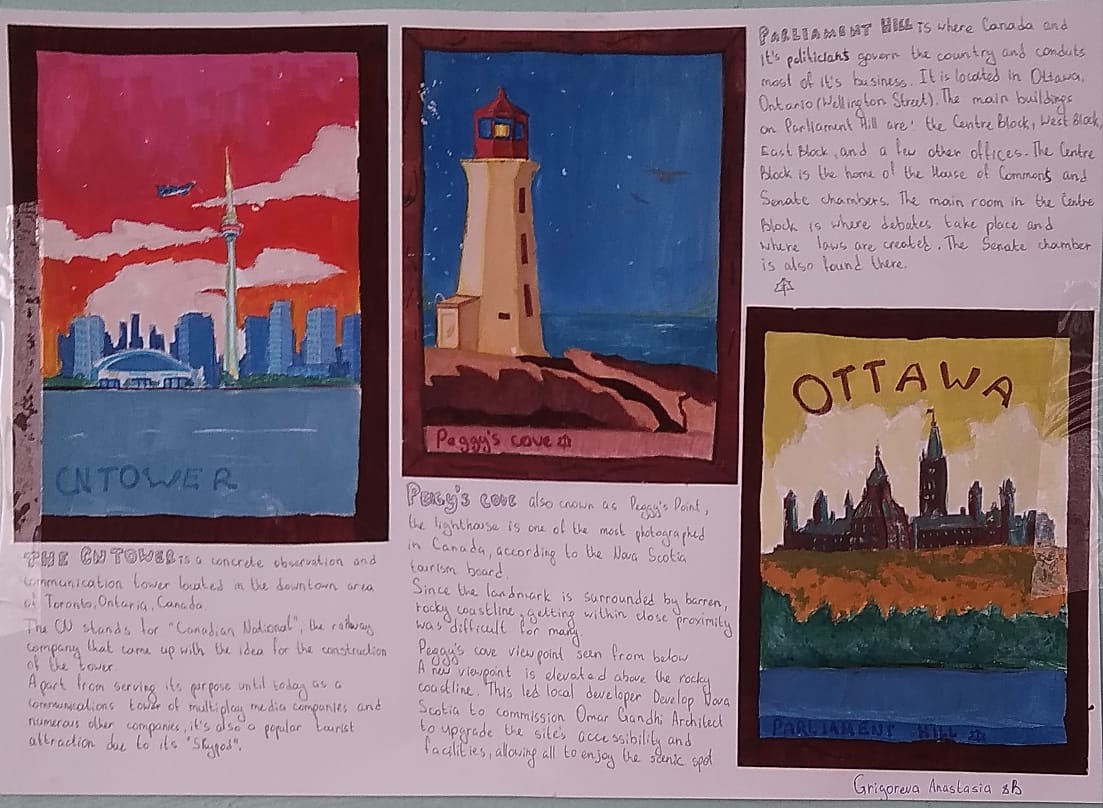 CN TOWER
THE CN TOWER is a concrete observation and
communication tower located in the downtown area
of Toronto, Ontario, Canada.
The CN stands for "Canadian National", the railway
company that came up with the idea for the construction
of the tower.
Apart from serving its purpose until today as a
communications tower of multiplay media companies and
numerous other companies, it's also a popular tourist
attraction due to its "Skypod".
Peggy's cove
PEGGY'S COVE also cnown as Peggy's Point,
the lighthouse is one of the most photographed
in Canada, according to the Nova Scotia
tourism board.
Since the landmark is surrounded by barren,
rocky coastline, getting within close proximity
was difficult for many.
Peggy's cove viewpoint seen from below
A new viewpoint is elevated above the rocky
coastline. This led local developer Develop Nova
Scotia to commission Omar Gandhi Architect
to upgrade the site's accessibility and
facilities, allowing all to enjoy the scenic spot
PARLIAMENT HILL is where Canada and
it's politicians govern the country and conduts
most of it's business. It is located in Ottawa,
Ontario (Wellington Street). The main buildings
on Parliament Hill are: the Centre Block, West Block,
East Block, and a few other offices. The Centre
Block is the home of the House of Commons and
Senate chambers. The main room in the Centre
Block is where debates take place and
where laws are created. The Senate chamber
is also found there.
OTTAWA
PARLIAMENT HILL
Grigoreva Anastasia 8B